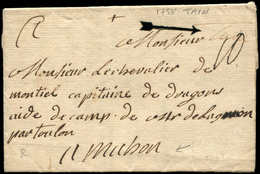 1758 TAIN
Monsieur
10
Monsieur Le chevalier de
montiel capitaine de dragons
aide de camp de Mr de
par toulon
a mahon
R